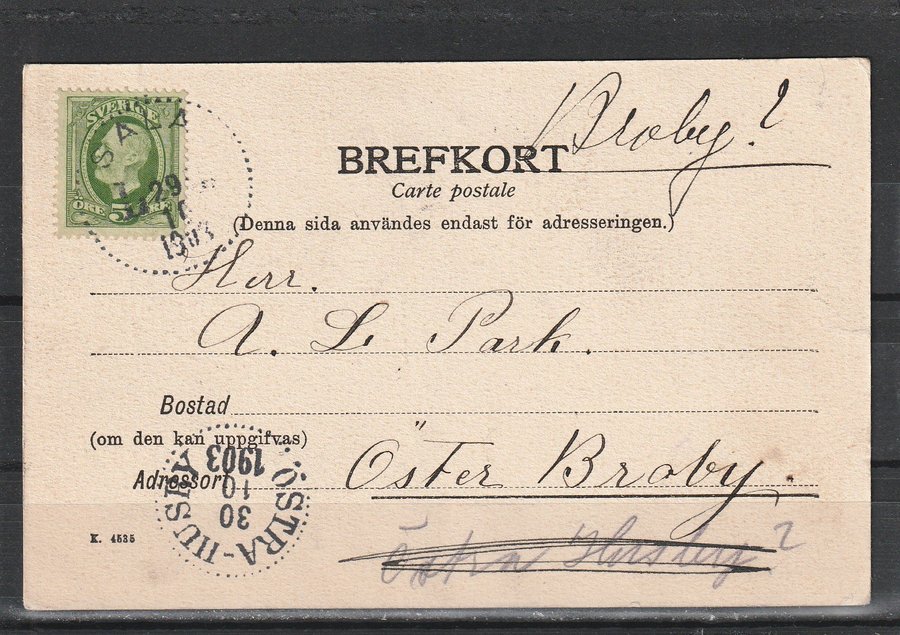 SVERIGE
5
ÖRE
SÄVA
29
10
1903
Broby?
BREFKORT
Carte postale
(Denna sida användes endast för adresseringen.)
Herr.
A. L Park.
Bostad
(om den kan uppgifvas)
Adressort
Öster Broby.
Östra Husby?
K. 4535
ÖSTRA-HUSBY
30
10
1903